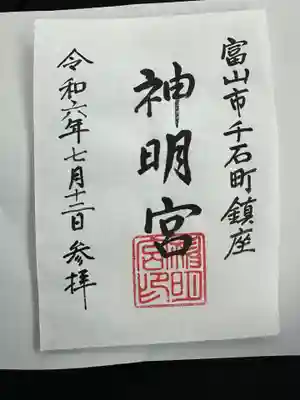 富山市千石町鎮座
神明宮
令和六年七月十二日参拝
神明宮印